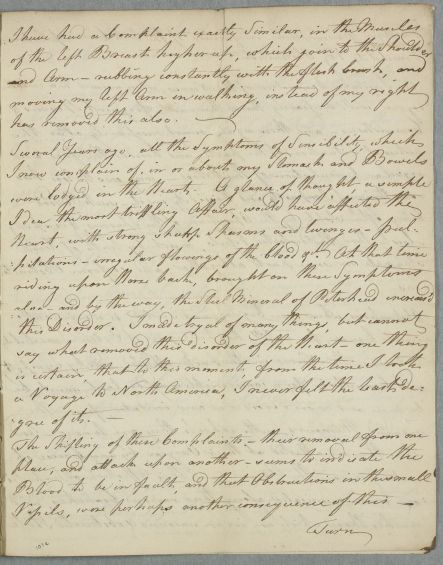 I have had a Complaint exactly Similar, in the Muscles
of the left Breast higher up, which join to the Shoulder
and Arm – rubbing constantly with the flesh brush, and
moving my left Arm in walking, instead of my right
has removed this also.
Several Years ago, all the Symptoms of Sensibilty, which
I now complain of, in or about my Stomach and Bowels
were lodged in the Heart. A glance of thought, a simple
Idea, the most triffling Affair, would have affected the
Heart, with strong sharp Spasms and twinges – pal-
pitations – irregular flowings of the blood &c. At that time
riding upon Horse back, brought on these Symptoms
also – and by the way, the Mineral of Peterhead increas'd
this Disorder. I made tryal of many things, but cannot
say what removed this disorder of the Heart – one thing
is certain, that to this moment, from the time I took
a Voyage to North America, I never felt the least de-
gree of it. —
The Shifting of these Complaints – their removal from one
place, and attack upon another – seems to indicate the
Blood to be in fault, and that Obstructions in the small
Vessels, were perhaps another consequence of this —
Turn